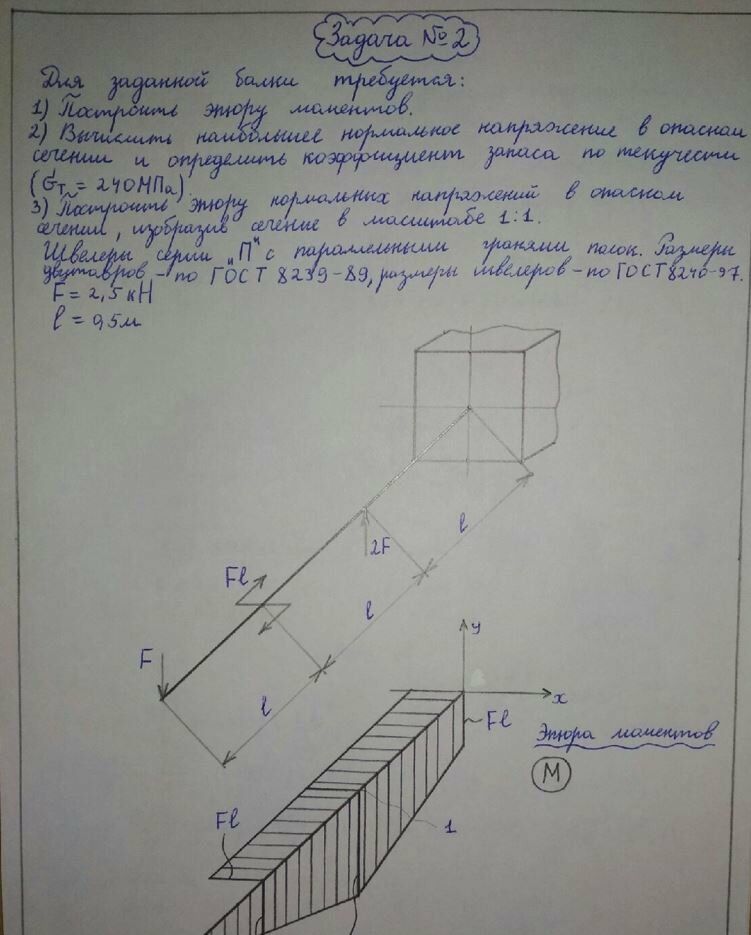 Задача № 2
Для заданной балки требуется:
1) Построить эпюру моментов.
2) Вычислить наибольшее нормальное напряжение в опасном
сечении и определить коэффициент запаса по текучести
(σт = 240 МПа).
3) Построить эпюру нормальных напряжений в опасном
сечении, изобразив сечение в масштабе 1:1.
Швелеры серии „П" с параллельными гранями полок. Размеры
двутавров - по ГОСТ 8239-89, размеры швелеров - по ГОСТ 8240-97.
F = 2,5 кН
l = 0,5 м
l
2F
Fl
l
F
l
y
x
Fl
Эпюра моментов
M
Fl
1